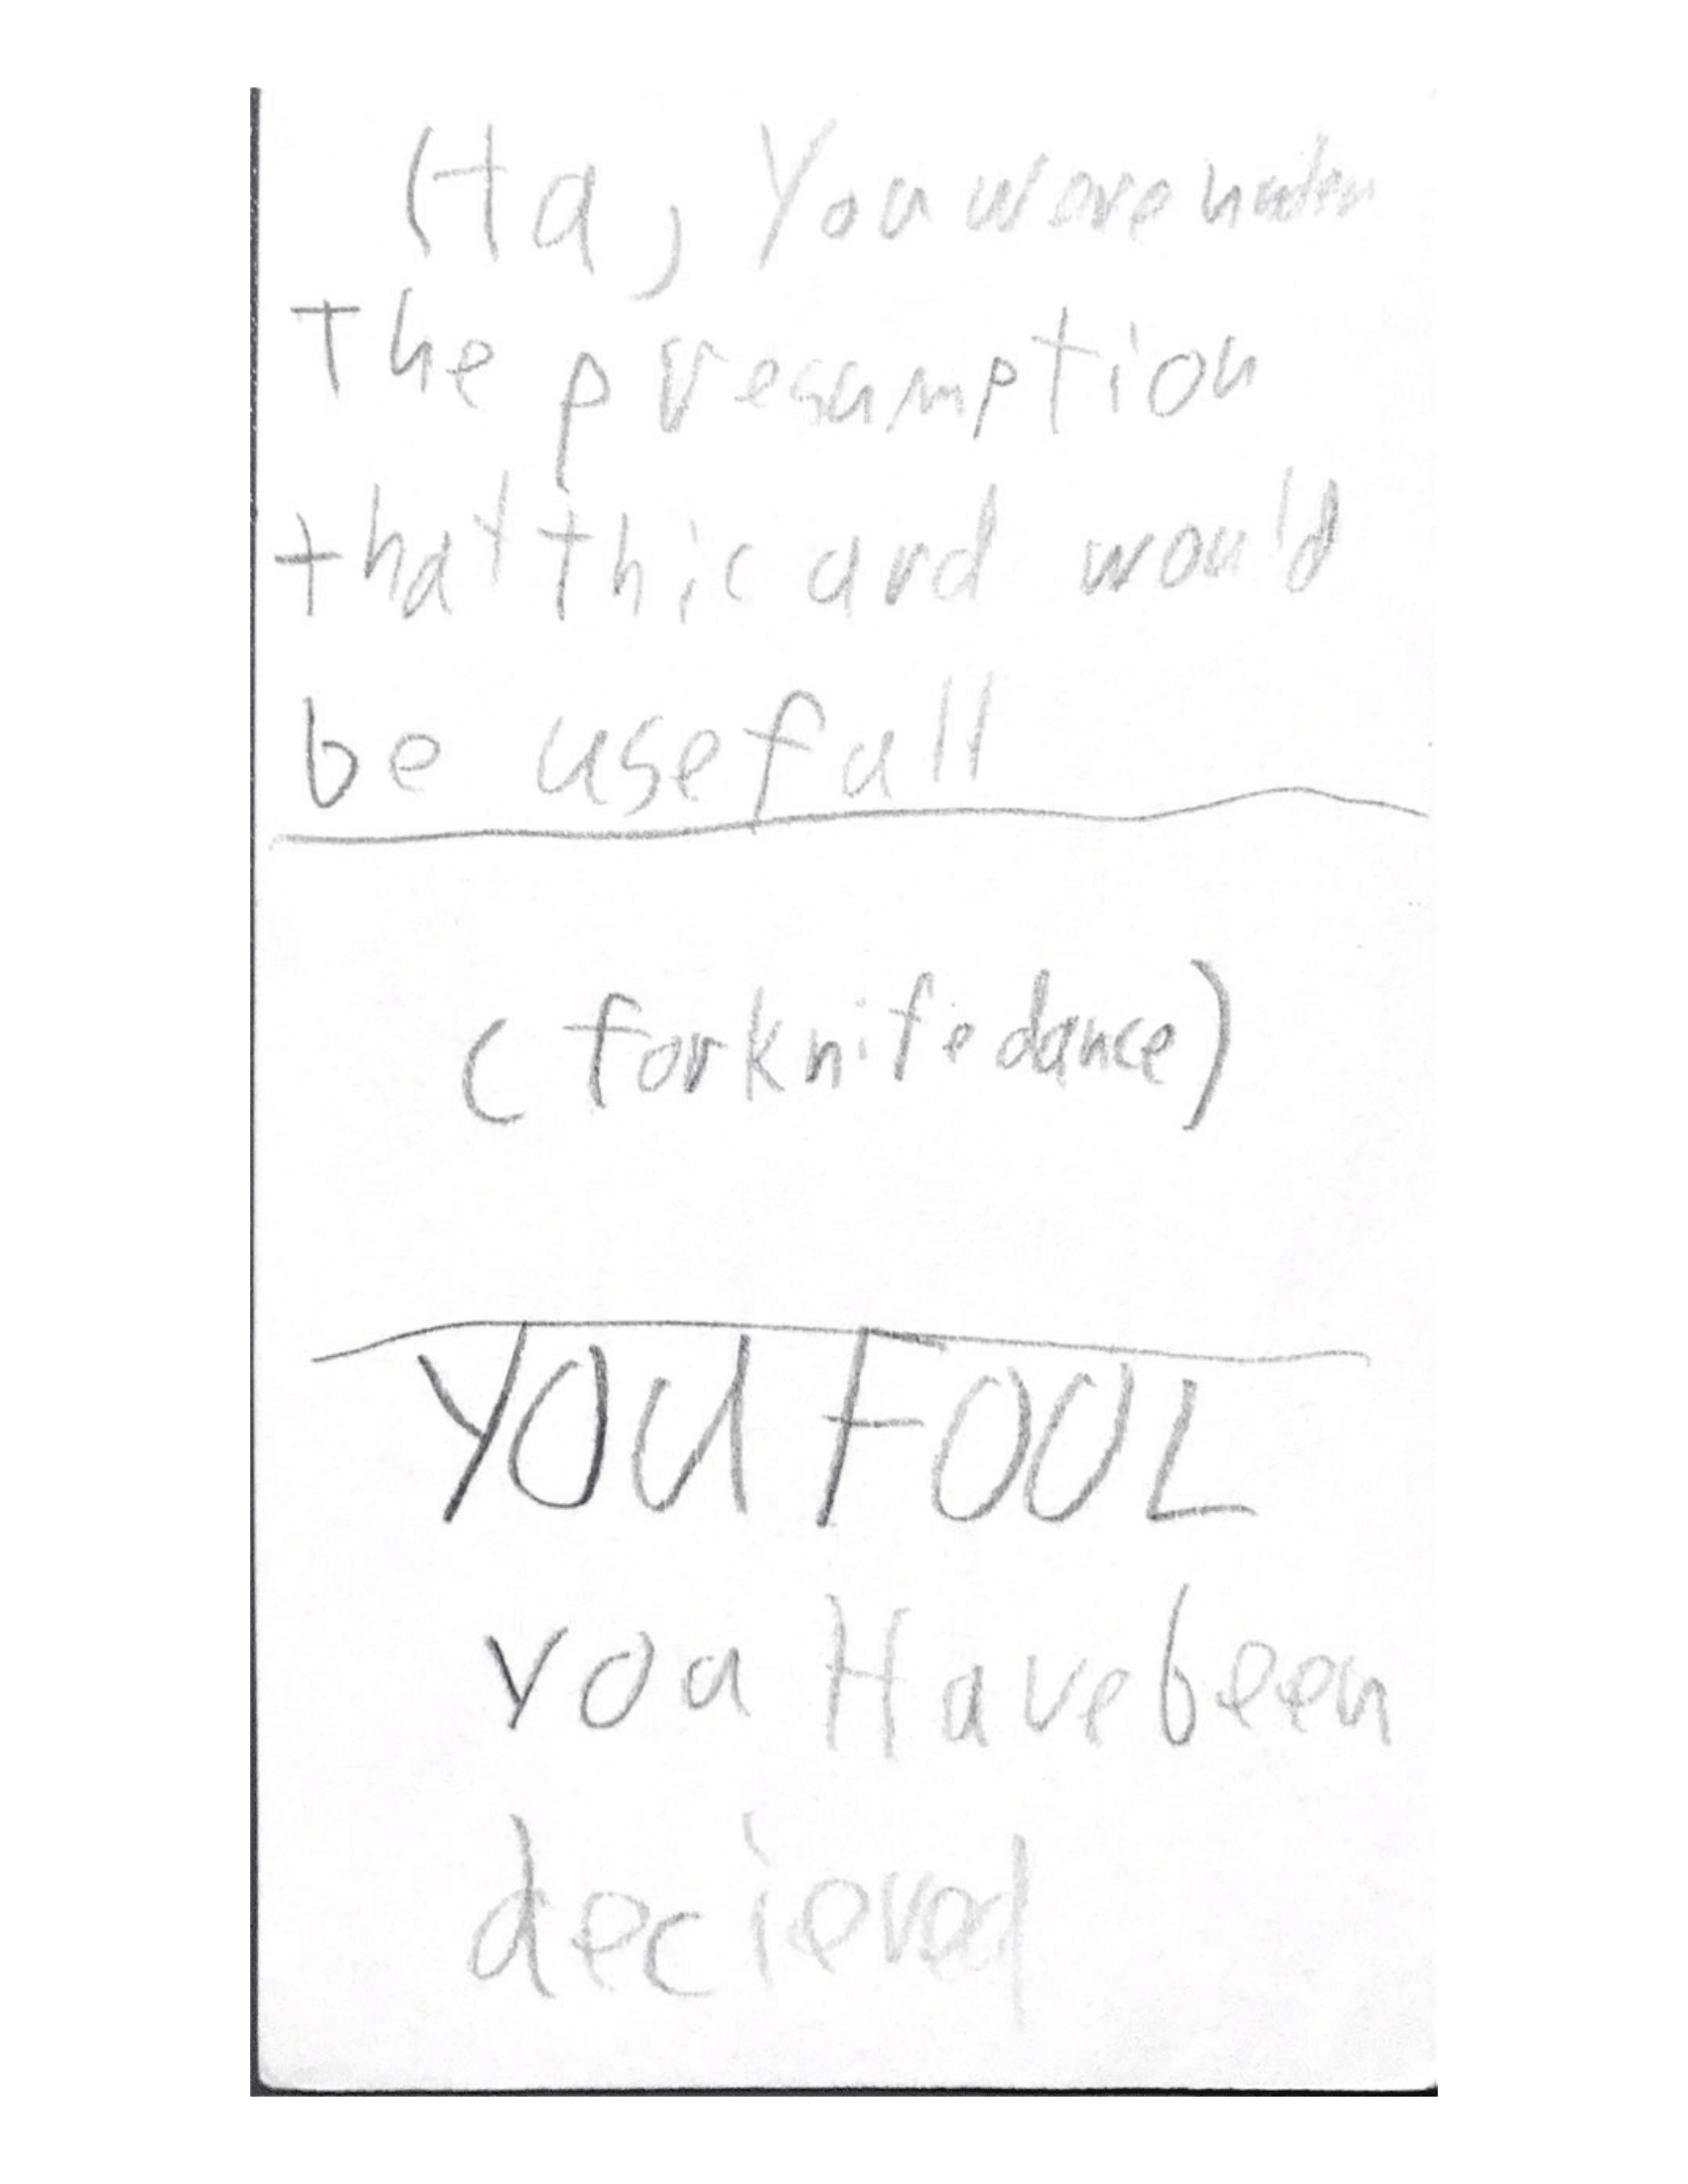 Ha, You were under
The presumption
that thic ard would
be usefull
(for knife dance)
YOU FOOL
you Have been
decieved